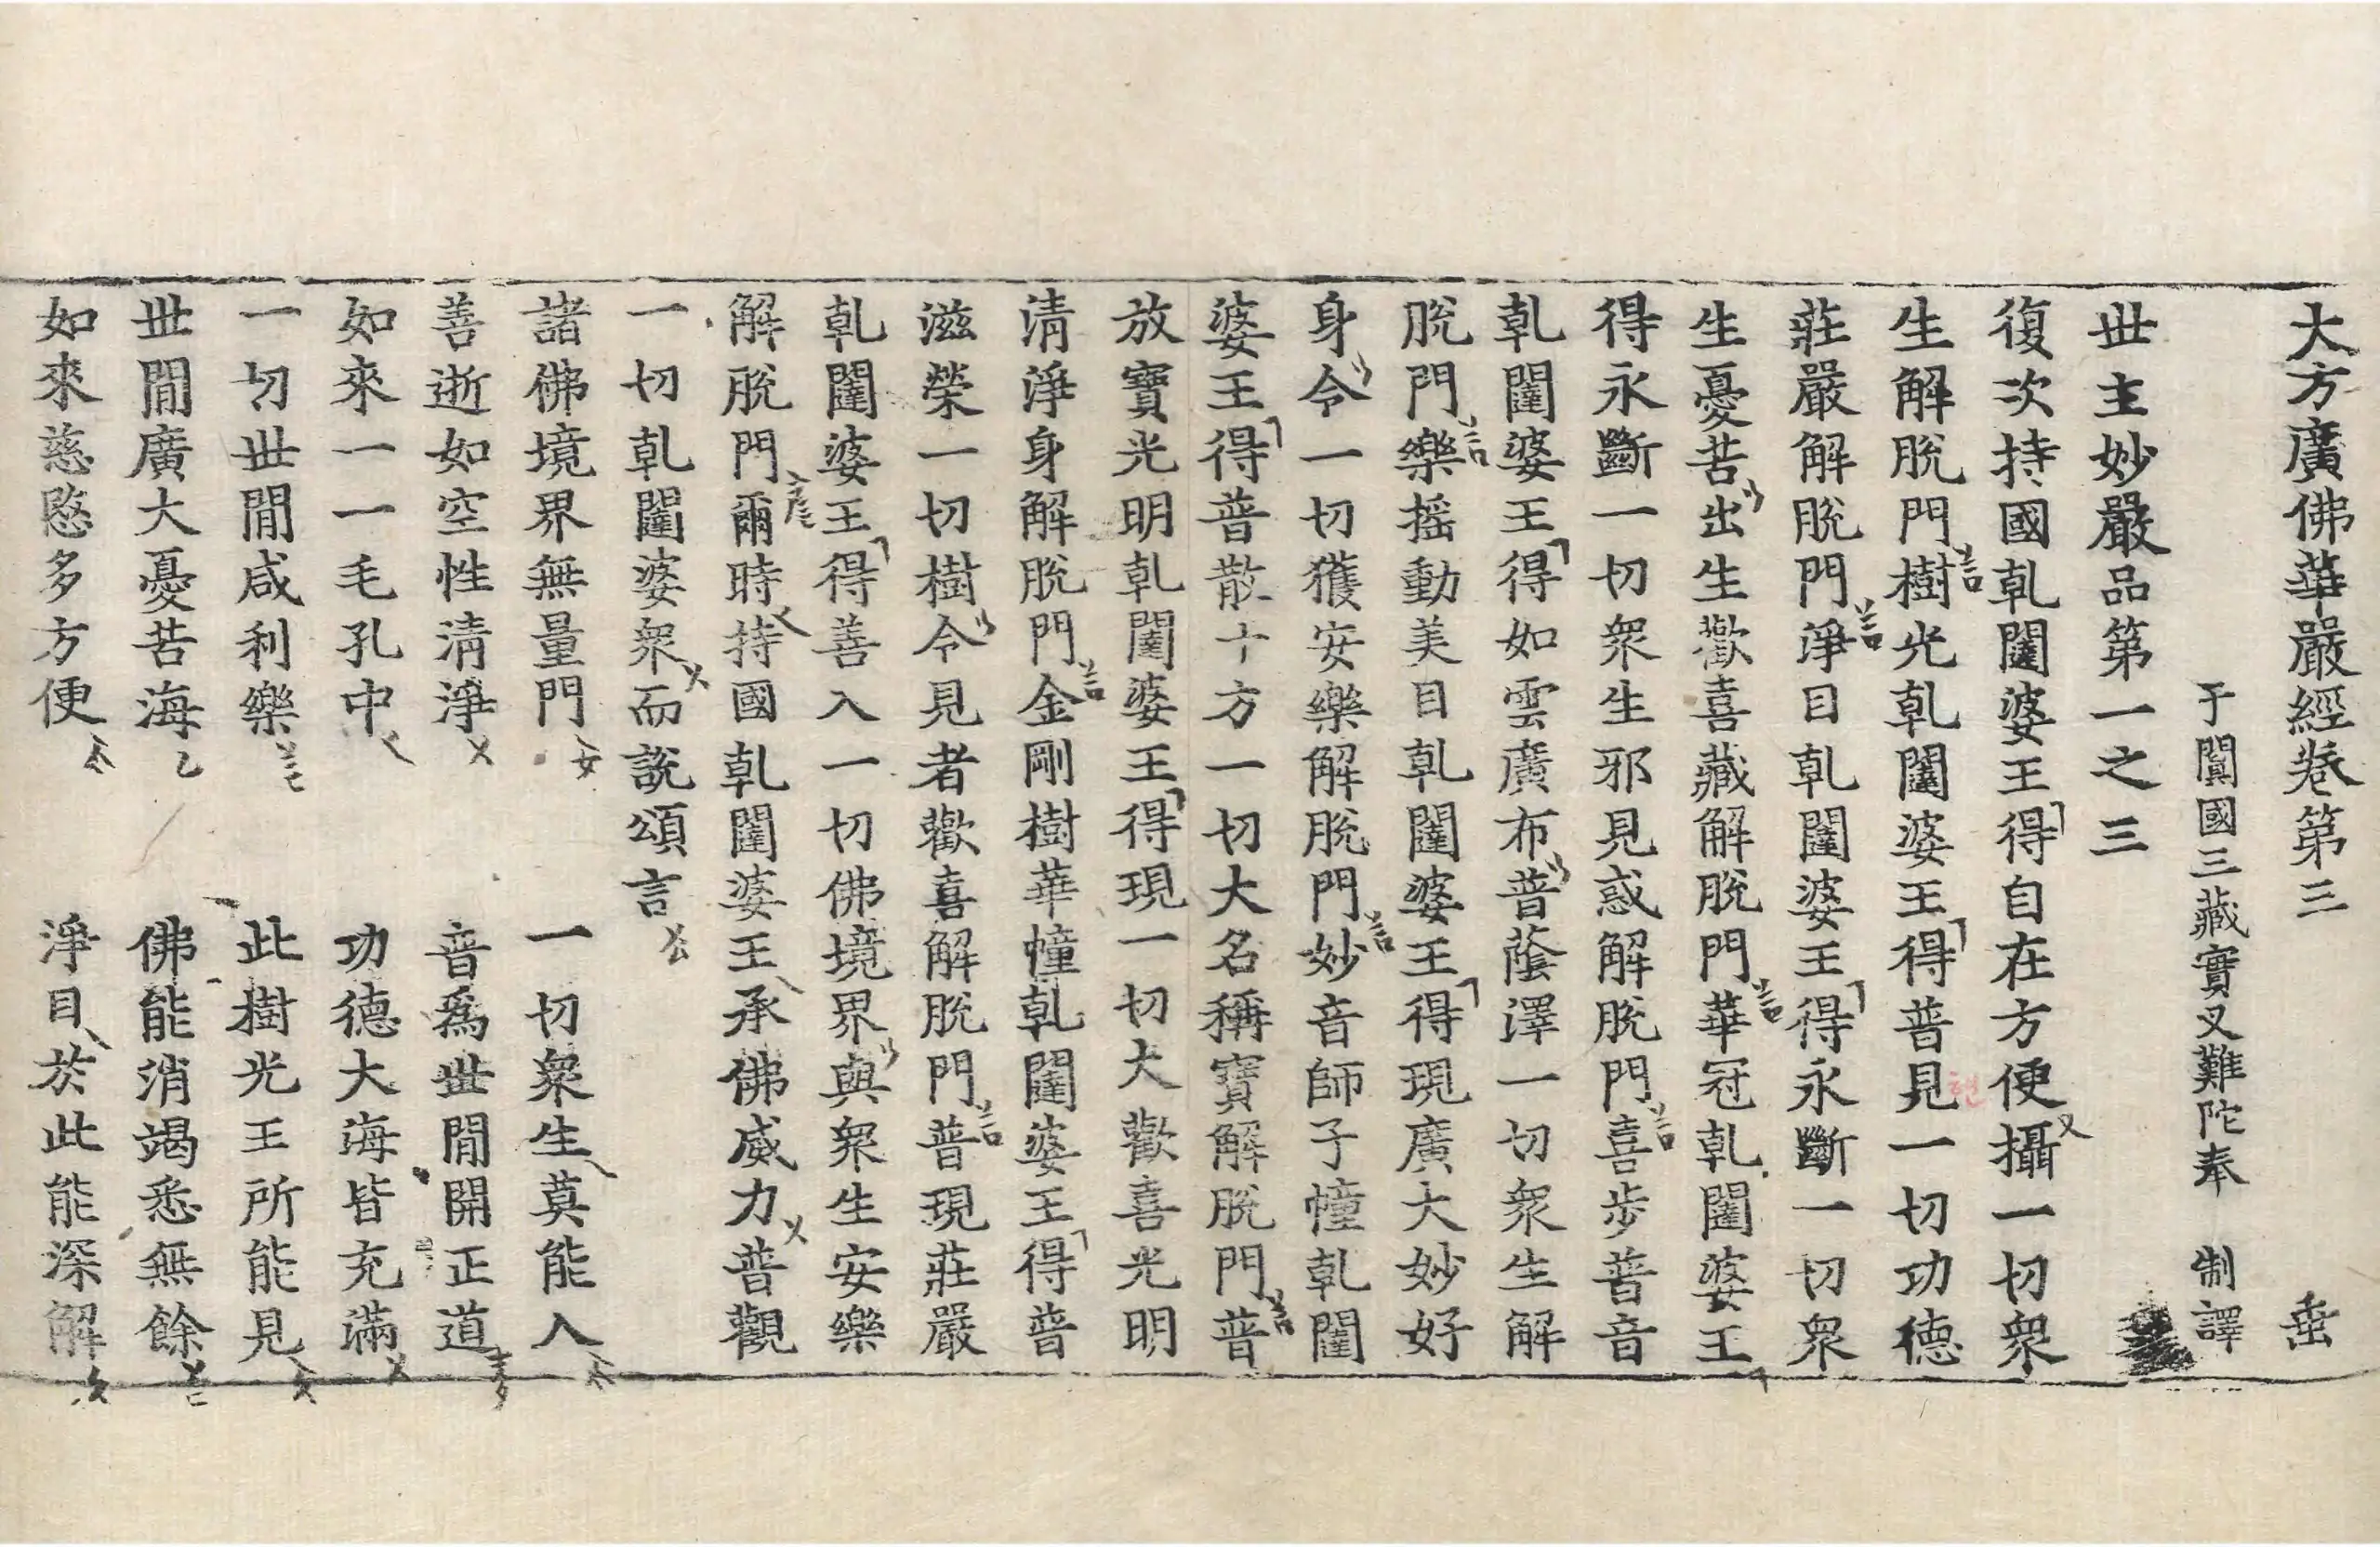 大方廣佛華嚴經卷第三 垂
于闐國三藏實叉難陀奉 制譯
世主妙嚴品第一之三
復次持國乹闥婆王得自在方便攝一切衆
生解脫門樹光乹闥婆王得普見一切功德
莊嚴解脫門淨目乹闥婆王得永斷一切衆
生憂苦出生歡喜藏解脫門華冠乹闥婆王
得永斷一切衆生邪見惑解脫門喜步普音
乹闥婆王得如雲廣布普蔭澤一切衆生解
脫門樂搖動美目乹闥婆王得現廣大妙好
身令一切獲安樂解脫門妙音師子幢乹闥
婆王得普散十方一切大名稱寶解脫門普
放寶光明乹闥婆王得現一切大歡喜光明
清淨身解脫門金剛樹華幢乹闥婆王得普
滋榮一切樹令見者歡喜解脫門普現莊嚴
乹闥婆王得善入一切佛境界與衆生安樂
解脫門爾時持國乹闥婆王承佛威力普觀
一切乹闥婆衆而說頌言
諸佛境界無量門 一切衆生莫能入
善逝如空性清淨 普爲世間開正道
如來一一毛孔中 功德大海皆充滿
一切世間咸利樂 此樹光王所能見
世間廣大憂苦海 佛能消竭悉無餘
如來慈愍多方便 淨目於此能深解